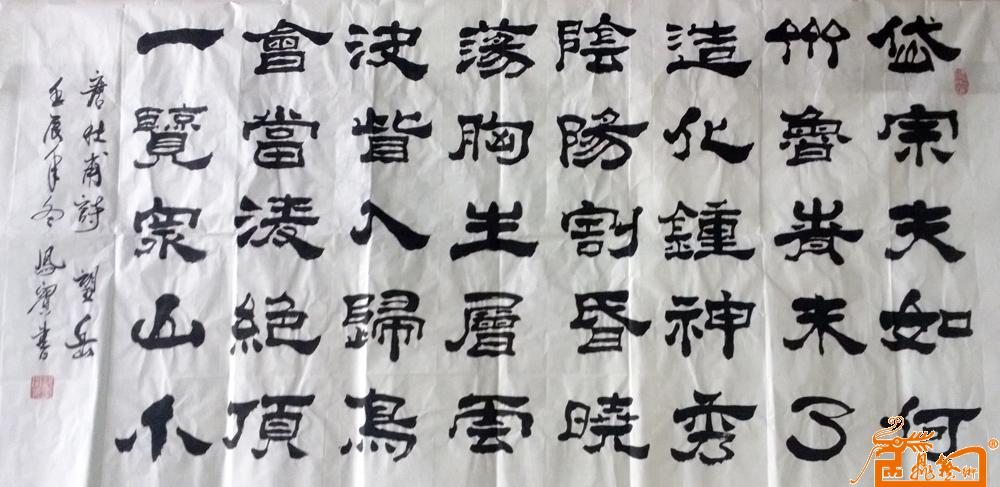 岱宗夫如何
齊魯青未了
造化鍾神秀
陰陽割昏曉
蕩胸生層雲
決眥入歸鳥
會當淩絕頂
一覽眾山小
唐杜甫詩 望岳
壬辰年冬 鳳寶書